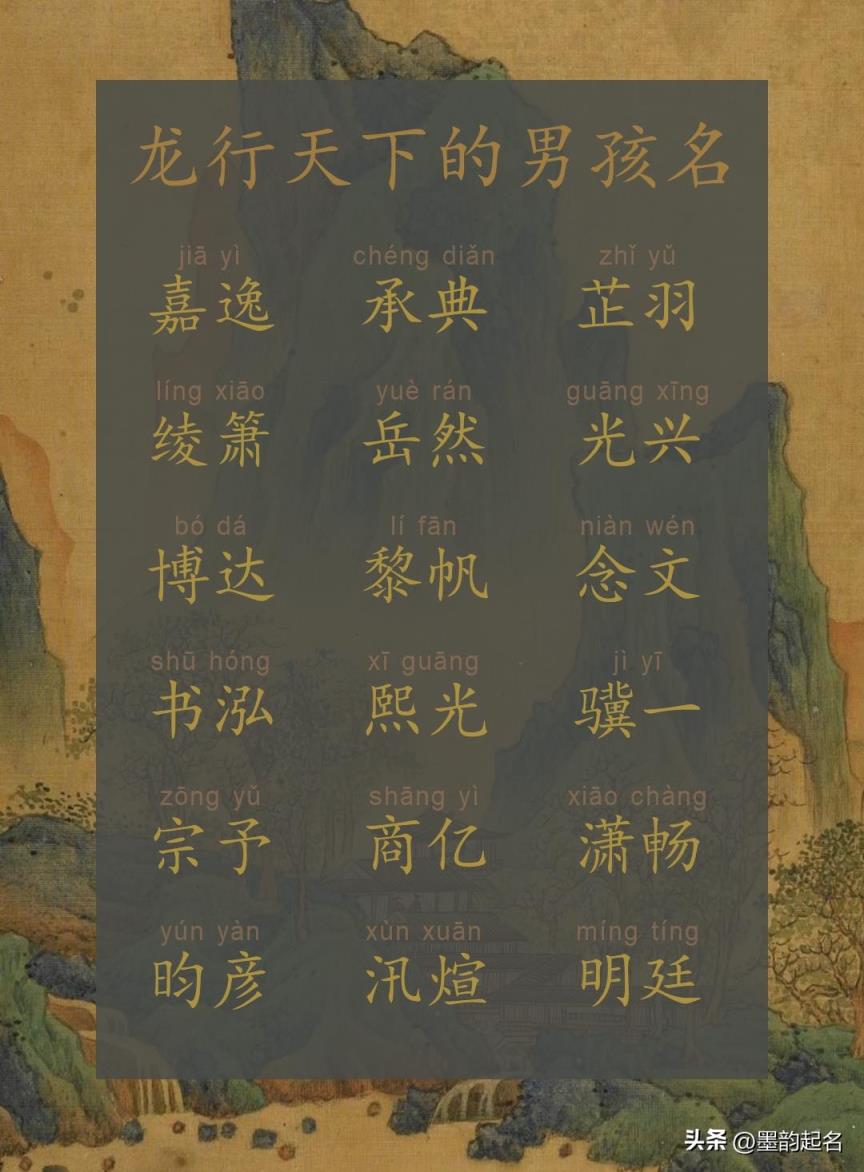 龙行天下的男孩名
jiā yì chéng diǎn zhǐ yǔ
嘉逸 承典 芷羽
líng xiāo yuè rán guāng xīng
绫箫 岳然 光兴
bó dá lí fān niàn wén
博达 黎帆 念文
shū hóng xī guāng jì yī
书泓 熙光 骥一
zōng yǔ shāng yì xiāo chàng
宗予 商亿 潇畅
yún yàn xùn xuān míng tíng
昀彦 汛煊 明廷
头条 @墨韵起名